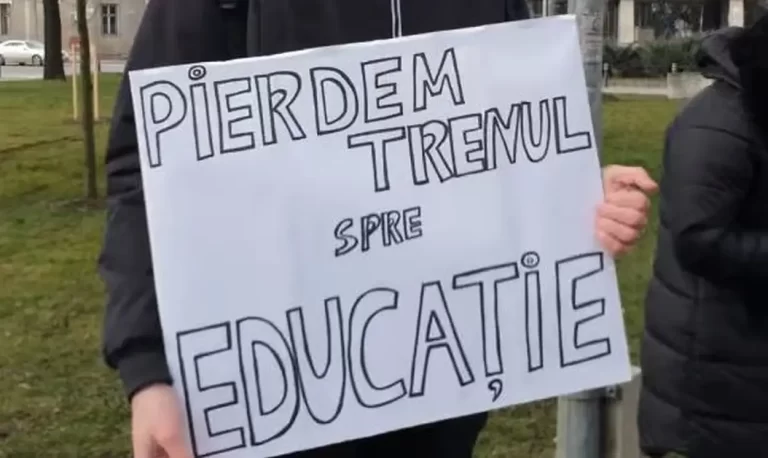 PiERDEM
TRENUL
SPRE
EDUCAȚiE